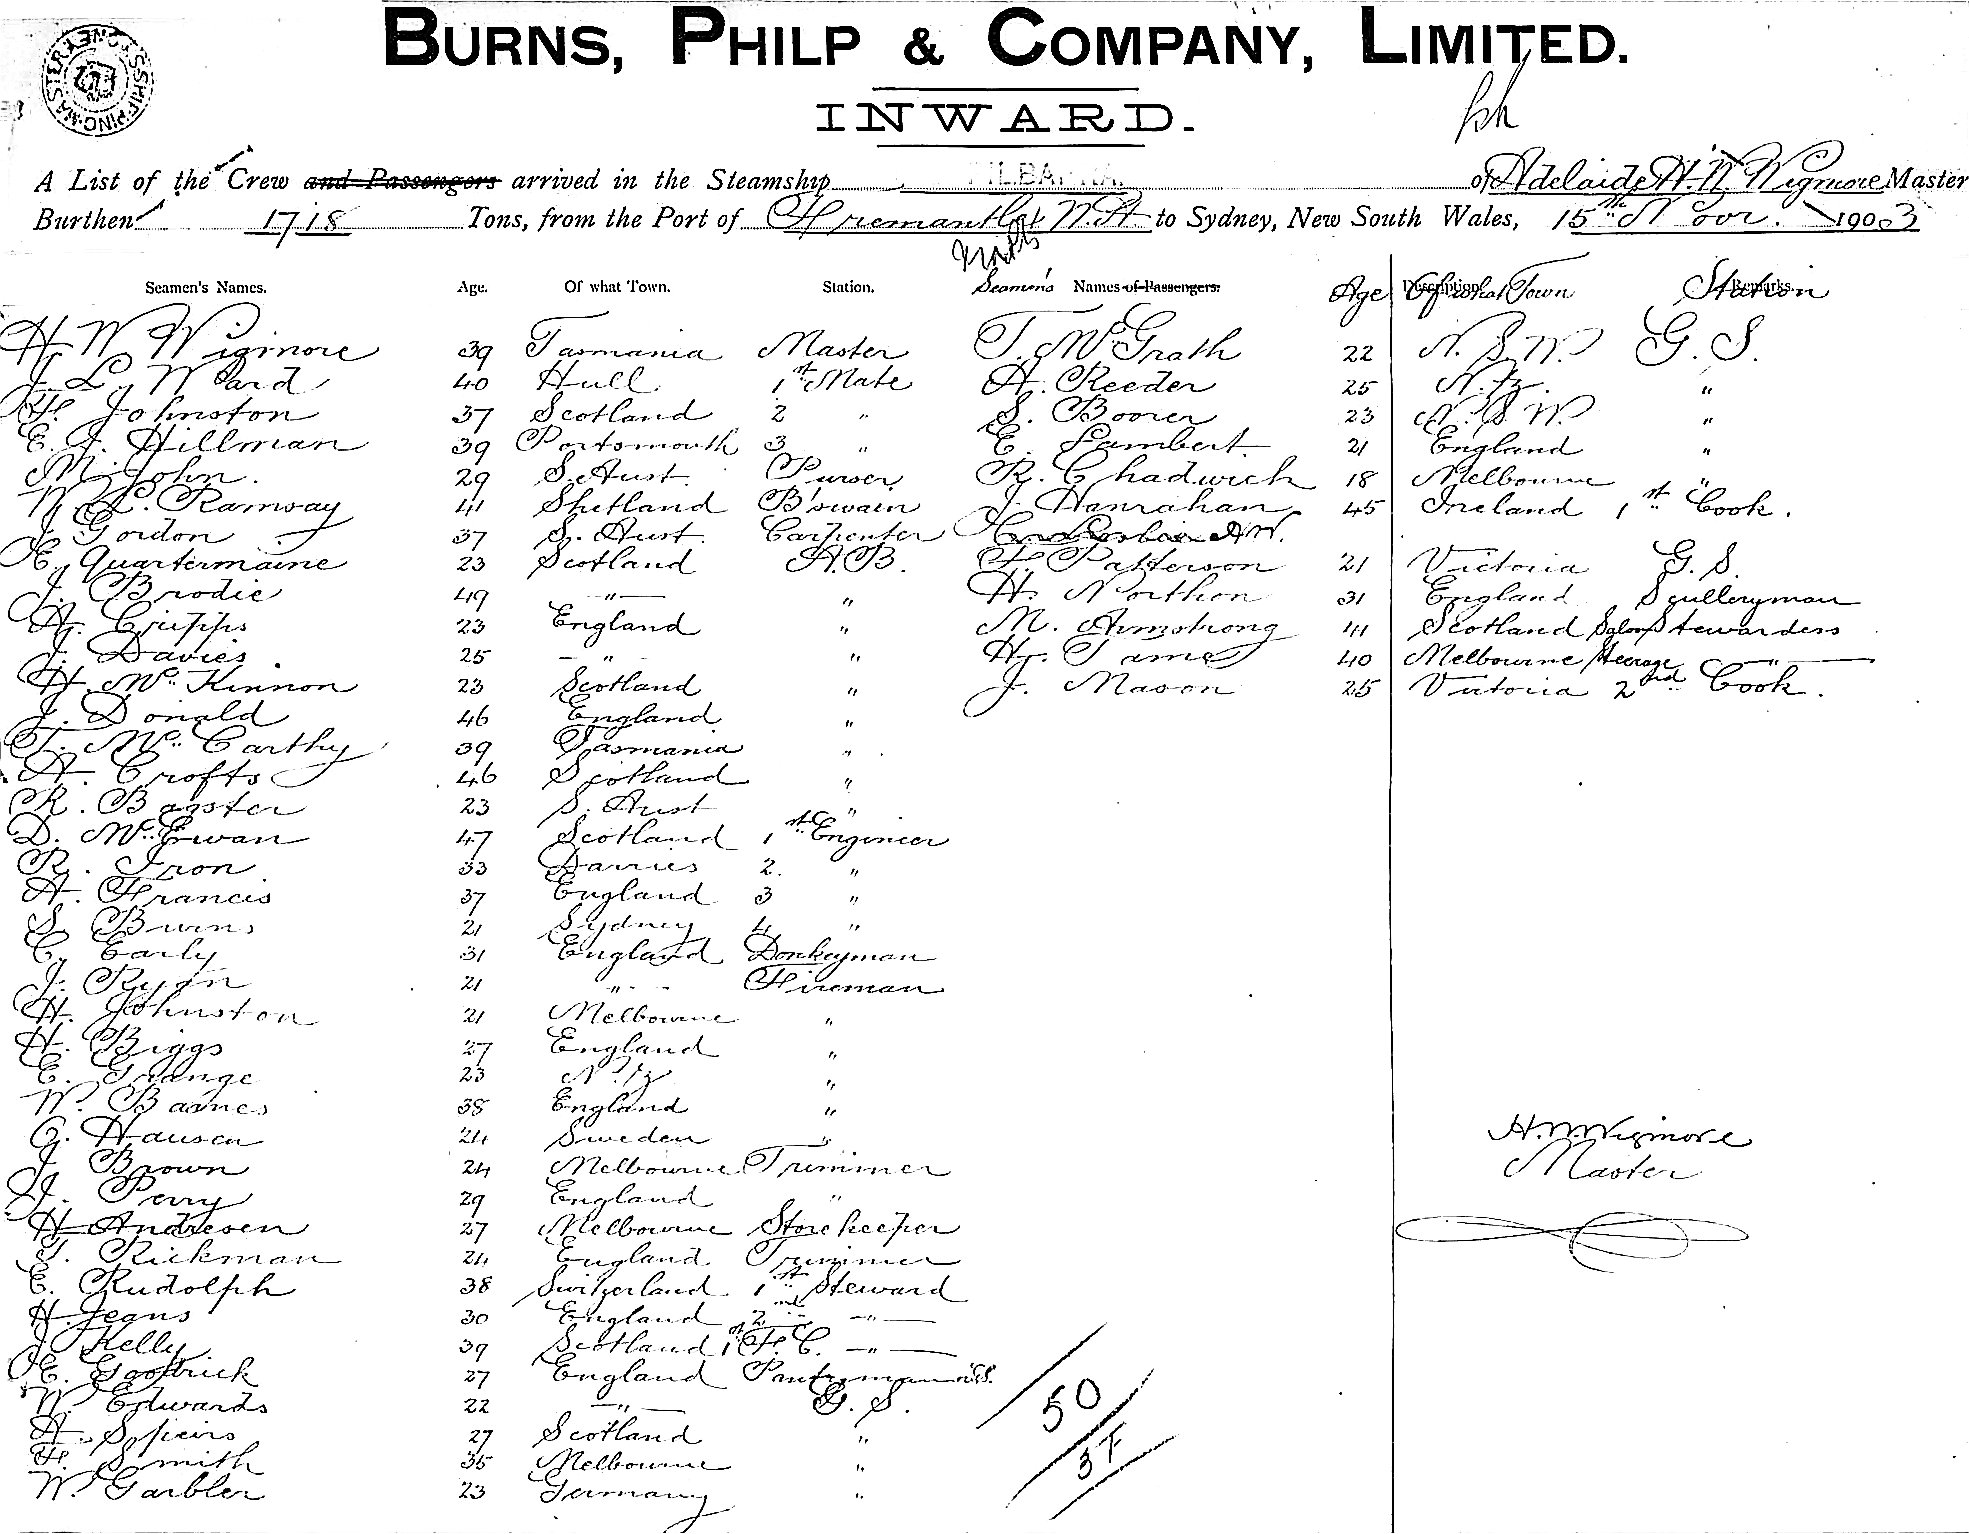 BURNS, PHILP & COMPANY, LIMITED.
INWARD.
A List of the Crew and Passengers arrived in the Steamship PILBARRA. of Adelaide H. W. Wigmore Master
Burthen 1718 Tons, from the Port of Fremantle W.A. to Sydney, New South Wales, 15th Nov. 1903
Seamen's Names. Age. Of what Town. Station. Seamen's Names of Passengers. Age Description Of what Town Remarks Station
H W Wigmore 39 Tasmania Master T. McGrath 22 N.S.W. G.S.
J L Ward 40 Hull 1st Mate A. Reeder 25 N.Z. "
H. Johnston 37 Scotland 2 " S. Boorer 23 N.S.W. "
E. J. Hillman 39 Portsmouth 3 " E. Lambert 21 England "
M. John. 29 S. Aust. Purser R. Chadwick 18 Melbourne "
W. L. Ramsay 41 Shetland B'swain J. Hanrahan 45 Ireland 1st Cook.
J. Gordon 37 S. Aust. Carpenter
E. Quartermaine 23 Scotland A.B. F. Patterson 21 Victoria G.S.
J. Brodie 49 " " H. Northon 31 England Sculleryman
A. Cripps 23 England " M. Armstrong 41 Scotland Saloon Stewardess
J. Davies. 25 " " H. Tame 40 Melbourne Steerage "
H. McKinnon 23 Scotland " J. Mason 25 Victoria 2nd Cook.
J. Donald 46 England "
T. McCarthy 39 Tasmania "
A. Crofts 46 Scotland "
R. Bagster 23 S. Aust "
D. McEwan 47 Scotland 1st Engineer
R. Iron 33 Barries 2. "
A. Francis 37 England 3 "
S. Burns 21 Sydney 4 "
C. Early 31 England Donkeyman
J. Ryan 21 " Fireman
H. Johnston 21 Melbourne "
H. Biggs 27 England "
E. Grange 23 N.Z. "
W. Barnes 38 England "
G. Hansen 24 Sweden "
J. Brown 24 Melbourne Trimmer
J. Perry 29 England "
H Andresen 27 Melbourne Storekeeper
T. Rickman 24 England Trimmer
E. Rudolph 38 Switzerland 1st Steward
H Jeans 30 England 2nd "
J Kelly 39 Scotland 1st F.C. "
E. Gostrick 27 England Pantryman
W. Edwards 22 " G.S.
A. Speirs 27 Scotland "
F. Smith 35 Melbourne "
W. Garbler 23 Germany "
50
37
H. W. Wigmore
Master